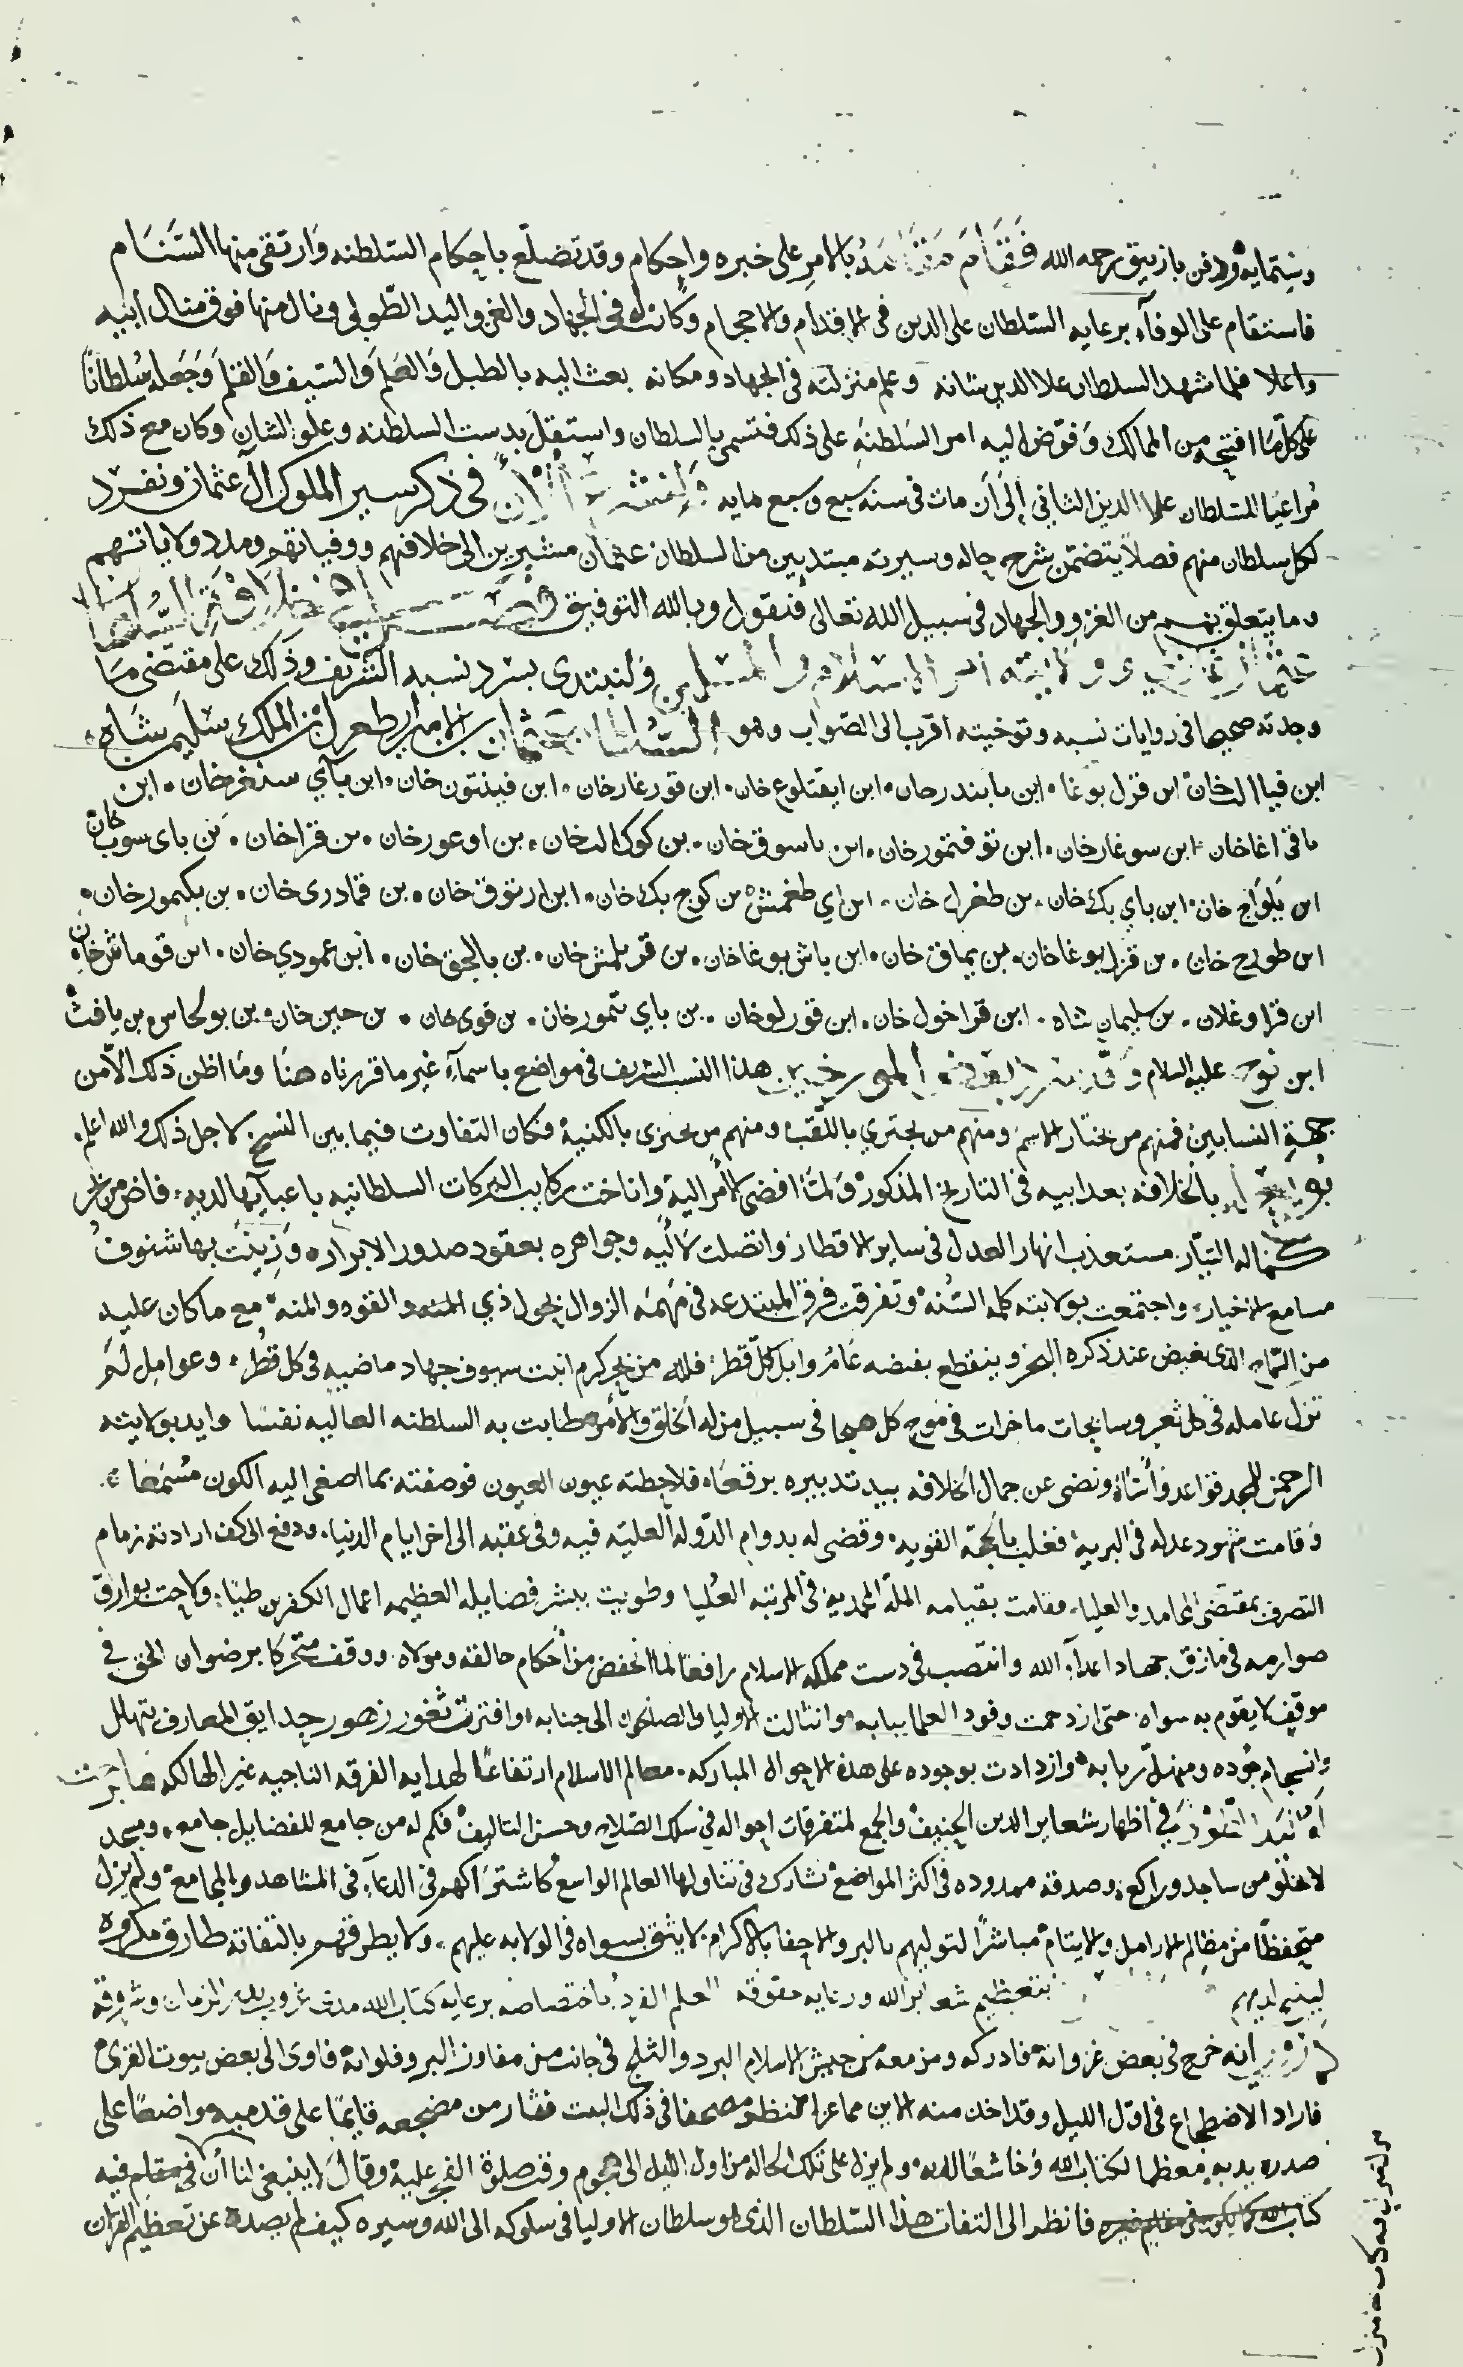 وستمايه ودفن بازنيق رحمه الله فقام مقامه بالامر على خبره واحكام وقد تضلّع باحكام السلطنه وارتقى منها السّنام
فاستقام على الوفآء برعايه السّلطان على الدين فى الاقدام والاحجام وكانت له فى الجهاد والغزو اليد الطّولى ونال منها فوق منال ابيه
واعلا فلما شهد السلطان علا الدين شانه وعلم منزلته فى الجهاد ومكانه بعث اليه بالطبل والعلم والسّيف والقلم وجعله سُلطانًا
على كل ما افتتحه من الممالك وفوّض اليه امر السّلطنه على ذلك فتسمى بالسلطان واستقلّ بدست السلطنه وعلوّ الشان وكان مع ذلك
مُراعيا للسّلطان علا الدين الثانى إلى أن مات فى سنه سبع وسبع مايه ولنشرع الان فى ذكر سير الملوك آل عثمان ونفرد
لكل سلطان منهم فصلاً يتضمّن شرح حاله وسيرته مبتديين من السلطان عثمان مشيرين الى خلافتهم ووفياتهم ومدد ولاياتهم
وما يتعلق بهم من الغزو والجهاد فى سبيل الله تعالى فنقول وبالله التوفيق خلافة السلطان
عثمان غازي وولايته امر الاسلام والمسلمين ولنبتدى بسرد نسبه الشّريف وذلك على مقتضى ما
وجدته صحيحا فى روايات نسبه وتوخيته اقرب الى الصّواب وهو السلطان عثمان بن الامير ارطغرل بن الملك سليم شاه
ابن قيا الب خان ابن قزل بوغا ابن مايندر خان ابن ايقتلوع خان ابن قورغار خان ابن قينتون خان ابن باي سنغر خان ابن
باقى اغا خان ابن سوغار خان ابن توقتمور خان ابن باسوق خان بن كوك الب خان بن اوغور خان بن قرا خان بن باى سوب خان
ابن يلواج خان ابن باي بك خان بن طغرل خان ابن اي طغمش بن كوج بك خان ابن ارتوق خان بن قمادرى خان بن بكيمور خان
ابن طورج خان بن قزل بوغا خان بن يماق خان ابن باش بوغا خان بن قربلمش خان بن بالجق خان ابن عمودي خان ابن قوماش خان
ابن قرا وغلان بن سليمان شاه ابن قرا خول خان ابن قورلو خان بن باي تمور خان بن قوى خان بن حين خان بن بولجاس بن يافث
ابن نوح عليه السلام وقد سرد بعض المورخين هذا النسب الشريف فى مواضع باسمآء غير ما قررناه هنا وما اظن ذلك الاّ من
جهة النسابين فمنهم من يختار الاسم ومنهم من يجتزي باللّقب ومنهم من يجتزى بالكنية فكان التفاوت فيما بين النسخ لاجل ذلك والله اعلم
بويع له بالخلافه بعد ابيه فى التاريخ المذكور ولمّا افضى الأمر اليه واناخت ركايب البركات السلطانيه باعبآيها لديه فاض من بحر
كماله التيّار مستعذب انهار العدل فى ساير الاقطار واتصلت لآليه وجواهره بعقود صدور الابرار وزينت بها شنوف
مسامع الاخيار واجتمعت بولايته كلمة السّنه وتفرقت فرق المبتدعه فى مهمه الزوال لحول ذي القود والمنه مع ما كان عليه
من السّماح الذى يغيض عند ذكره البحر وينقطع بفيضه غامر وابل كلّ قطر فلله من بحر كرم انبت سيوف جهاد ماضيه فى كل قُطر وعوامل لم
تزل عامله فى كل ثغر وسابحات ماخرات فى موج كل هيجا فى سبيل من له الخلق والأمر طابت به السلطنه العاليه نفسًا وايد بولايته
الرحمن للمجد قواعد وأسّا ونضى عن جمال الخلافه بيد تدبيره برقعًا فلاحظته عيون العيون فوصفته بما اصغى اليه الكون مُسْتَمعًا
وقامت شهود عدله فى البريه فغلب بالحجّة القويه وقضى له بدوام الدّولة العليّه فيه وفى عقبه الى اخر ايام الدنيا ودفع الى كف ارادته زمام
التصرف بمقتضى المحامد والعليا فقامت بقيامه الملة المحمديه فى المرتبه العُليا وطويت بنشر فضايله العظيمه اعمال الكفر بن طيّا ولاحت بوارق
صوارمه فى مازق جهاد اعدآء الله وانتصب فى دست مملكه الاسلام رافعًا لما انخفض من أحكام خالقه ومولاه ووقف متحركا برضوان الحق فى
موقف لا يقوم به سواه حتى ازدحمت وفود العلما ببابه وانثالت الاوليا والصلحا الى جنابه وافترت ثغور زهور حدايق المعارف بتهلل
وانسجام جوده ومنهلّ ربابه وازدادت بوجوده على هذه الاحوال المباركه معالم الاسلام ارتفاعًا لهدايه الفرقه الناجيه غير الهالكه
فى اظهار شعاير الدين الحنيف والجمع لمتفرقات احواله فى سلك الصّلاح وحسن التاليف فكم له من جامع للفضايل جامع ومسجد
لا يخلو من ساجد وراكع وصدقه ممدوده فى اكثر المواضع تشارك فى تناولها العالم الواسع كاشتراكهم فى الدعآء فى المشاهد والمجامع ولم يزل
متحفظًا من مظالم الارامل والايتام مباشرًا لتوليهم بالبر والاحفا بالاكرام لا يثق بسواه فى الولايه عليهم ولا يطرقهم بالتفاته طارق مكروه
بتعظيم شعاير الله ورعايه حقوقه العلم الفرد باختصاصه برعايه كتاب الله
روي انه خرج فى بعض غزواته فادركه ومن معه من جيش الاسلام البرد والثلج فى جانب من مفاوز البر وفلواته فاوى الى بعض بيوت القرى
فاراد الاضطجاع فى اوّل الليل وقد اخذ منه الاين مما عراه فنظر مصحفا فى ذلك البيت فثار من مضجعه قايمًا على قدميه واضعًا على
صدره يديه معظما لكتاب الله وخاشعًا لله ولم يزل على تلك الحاله من اول الليل الى هجوم وقت صلوة الفجر عليه وقال لا ينبغى لنا ان فى مقام فيه
كتاب الله فانظر الى التفات هذا السّلطان الذى هو سلطان الاوليا فى سلوكه الى الله وسيره كيف لم يصده عن تعظيم القران